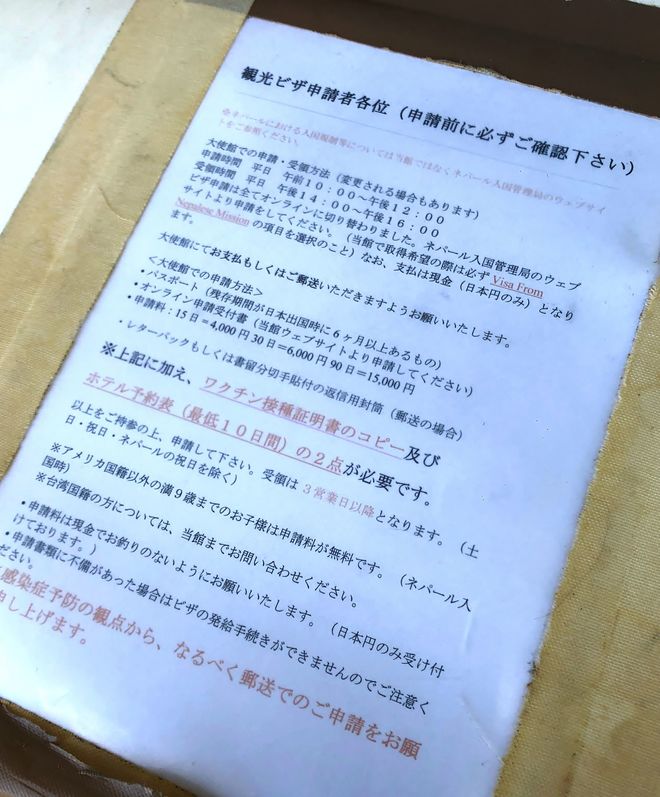 観光ビザ申請者各位（申請前に必ずご確認下さい）
※ネパールにおける入国規制等については当館ではなくネパール入国管理局のウェブサイ
トをご参照ください。
大使館での申請・受領方法（変更される場合もあります）
申請時間　平日　午前１０：００～午後１２：００
受領時間　平日　午後１４：００～午後１６：００
ビザ申請は全てオンラインに切り替わりました。ネパール入国管理局のウェブ
サイトより申請をしてください。（当館で取得希望の際は必ず Visa From
Nepalese Mission の項目を選択のこと）なお、支払は現金（日本円のみ）となり
ます。
大使館にてお支払もしくはご郵送いただきますようお願いいたします。
＜大使館での申請方法＞
・パスポート（残存期間が日本出国時に６ヶ月以上あるもの）
・オンライン申請受付書（当館ウェブサイトより申請してください）
・申請料：15日＝4,000円 30日＝6,000円 90日＝15,000円
・レターパックもしくは書留分切手貼付の返信用封筒（郵送の場合）
※上記に加え、ワクチン接種証明書のコピー及び
ホテル予約表（最低１０日間）の２点が必要です。
以上をご持参の上、申請して下さい。受領は ３営業日以降となります。（土
日・祝日・ネパールの祝日を除く）
※アメリカ国籍以外の満９歳までのお子様は申請料が無料です。（ネパール入
国時）
※台湾国籍の方については、当館までお問い合わせください。
・申請料は現金でお釣りのないようにお願いいたします。（日本円のみ受け付
けております。）
・申請書類に不備があった場合はビザの発給手続きができませんのでご注意く
ださい。
感染症予防の観点から、なるべく郵送でのご申請をお願
申し上げます。